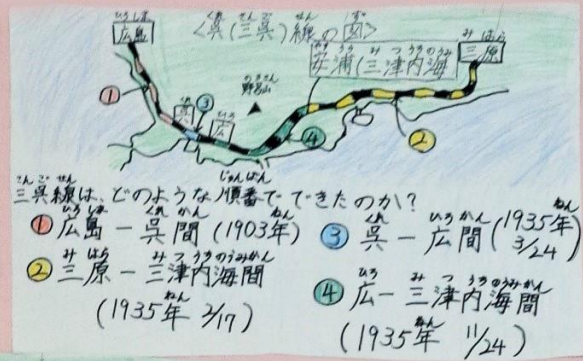 <呉(三呉)線の図>
広島
三原
安浦(三津内海
野呂山
呉
広
①
③
④
②
三呉線は、どのような順番でできたのか?
① 広島ー呉間(1903年)
② 三原ー三津内海間
(1935年 2/17)
③ 呉ー広間(1935年
3/24)
④ 広ー三津内海間
(1935年 11/24)